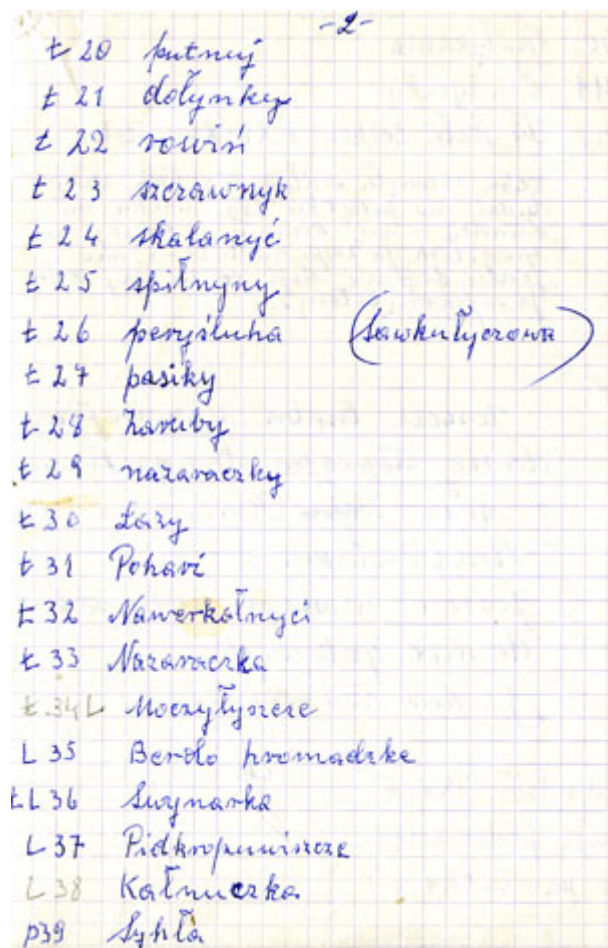 -2-
ł 20 putnuj
ł 21 dołynky
ł 22 rowiń
ł 23 szczawnyk
ł 24 skalanyć
ł 25 spiłnyny
ł 26 peryśluha (Sawkułyczowa)
ł 27 pasiky
ł 28 Zaruby
ł 29 nazaraczky
ł 30 Łazy
ł 31 Poharí
ł 32 Nawerkałnyci
ł 33 Nazaraczka
ł 34 L Moczyłyszcze
L 35 Berdo hromadzke
łL 36 Swynarka
L 37 Pidkropuwiszcze
L 38 Kałnuczka
p39 Syhła